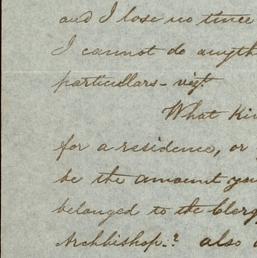 and I lose no time
I cannot do anyth
particulars - vizt.
What Kin
for a residence, or
be the amount you
belonged to the Clerg
Archbishop-? also